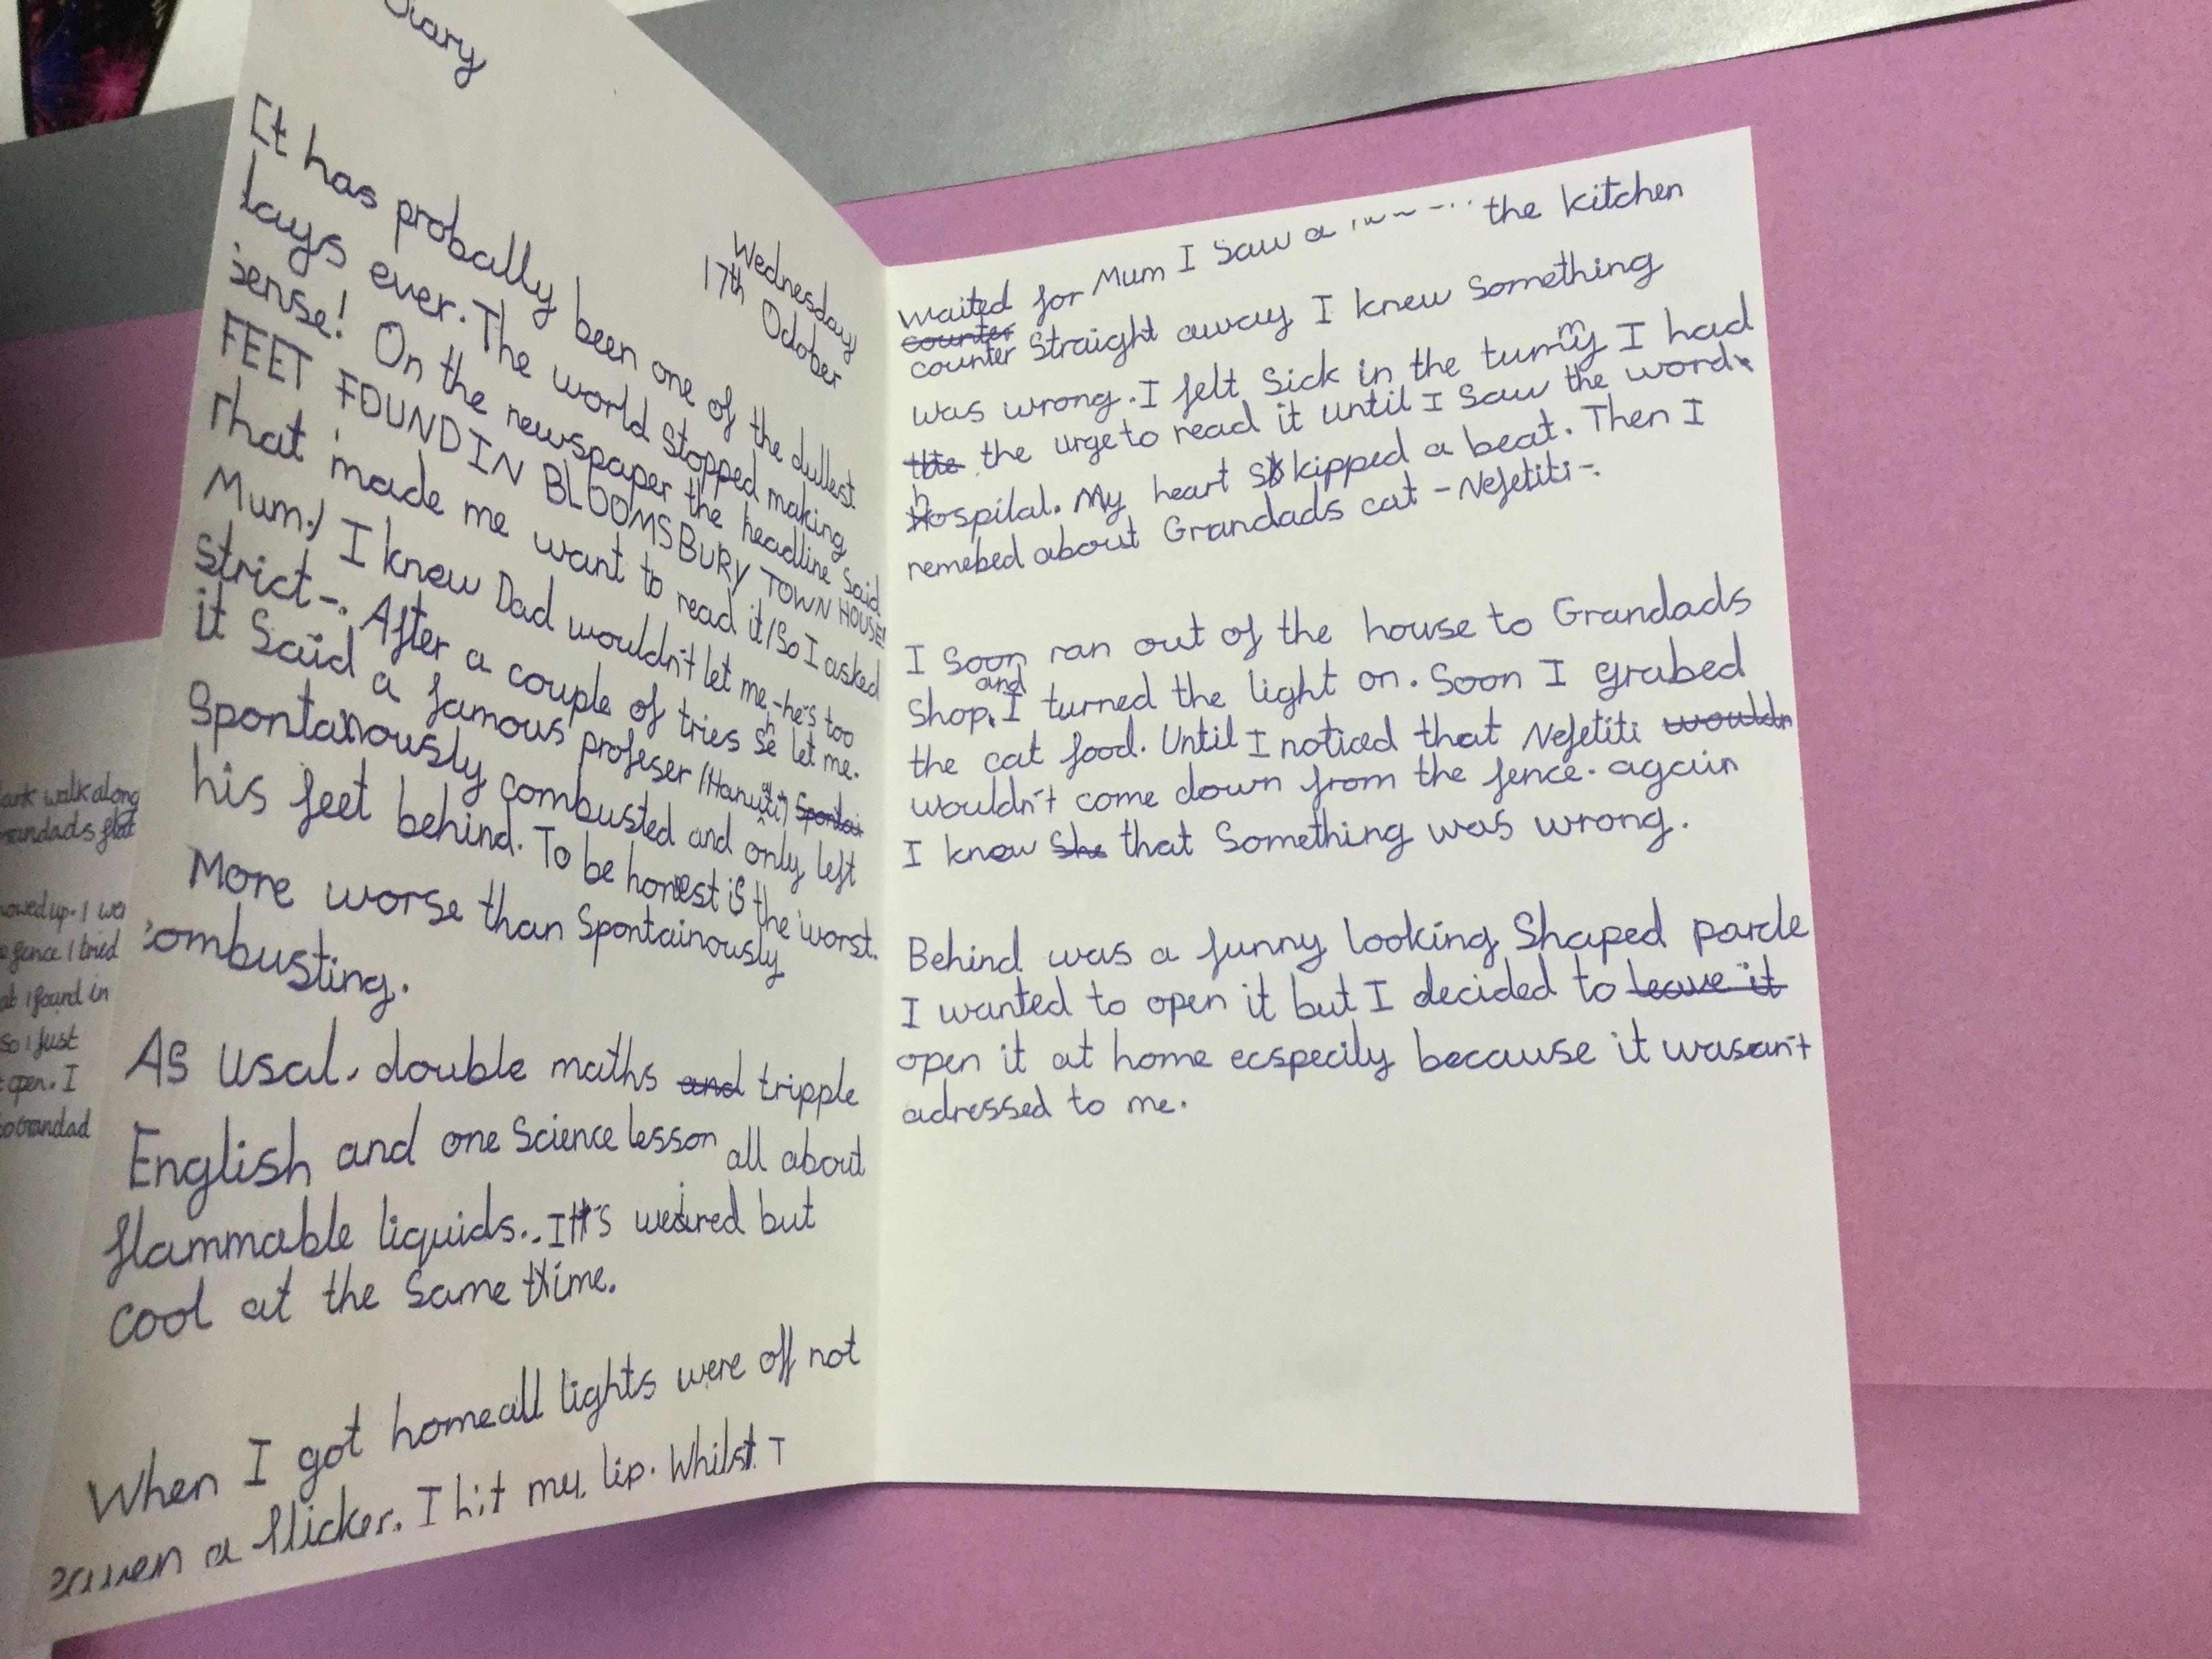 ank walk along
randads flat
owed up. I we
e fence I tried
at I found in
So I Just
t open. I
so Grandad
Diary
Wednesday
17th October
It has probally been one of the dullest
days ever. The world stopped making
sense! On the newspaper the headline said
FEET FOUND IN BLOOMSBURY TOWN HOUSE!
That made me want to read it (So I asked
Mum.) I knew Dad wouldn't let me -he's too
strict-. After a couple of tries she let me.
it Said a famous profeser (Hanuti) Spontai
Spontainously combusted and only left
his feet behind. To be honest is the worst.
More worse than Spontainously
combusting.
As Usal, double maths and tripple
English and one Science lesson all about
flammable liquids.. It's weired but
cool at the same time.
When I got home all lights were off not
even a flicker. I bit my lip. Whilst I
waited for Mum I Saw a the kitchen
counter
counter Straight away I knew Something
was wrong. I felt Sick in the tummy I had
the the urge to read it until I Saw the word
hospital. My heart skipped a beat. Then I
remebed about Grandads cat -Nefetiti-.
I Soon ran out of the house to Grandads
Shop and I turned the light on. Soon I grabed
the cat food. Until I noticed that Nefetiti wouldn
wouldn't come down from the fence. again
I knew She that Something was wrong.
Behind was a funny looking Shaped parcle
I wanted to open it but I decided to leave it
open it at home ecspecily because it wasan't
adressed to me.